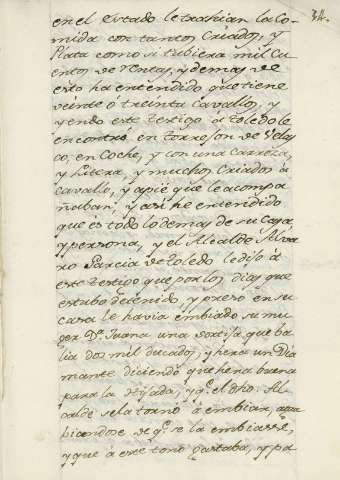 34.
en el Estado le trahian la Co-
mida con tantos Criados, y
Plata como si tubiera mil Cu
entos de rentas, y demas de
esto ha entendido que tiene
veinte o treinta Cavallos, y
yendo este testigo à toledo le
encontró en torrejon de Velas
co, en Coche, y con una Carroza,
y Litera, y muchos Criados à
cavallo, y apie que le acompa
ñaban, y asi he entendido
que es todo lo demas de su Casa
y persona, y el Alcalde Alva
ro Garcia de toledo le dijo à
este testigo que por los dias que
estubo detenido, y preso en su
casa le havia embiado su mu
ger Dª. Juana una sortija que ba
lia dos mil ducados, y hera un Dia
mante diciendo que hera buena
para la hijada, y q.e el dho. Al
calde se la tornò à embiar,
biendose de q.e se la embiasse,
y que à este tono gastaba, y pa